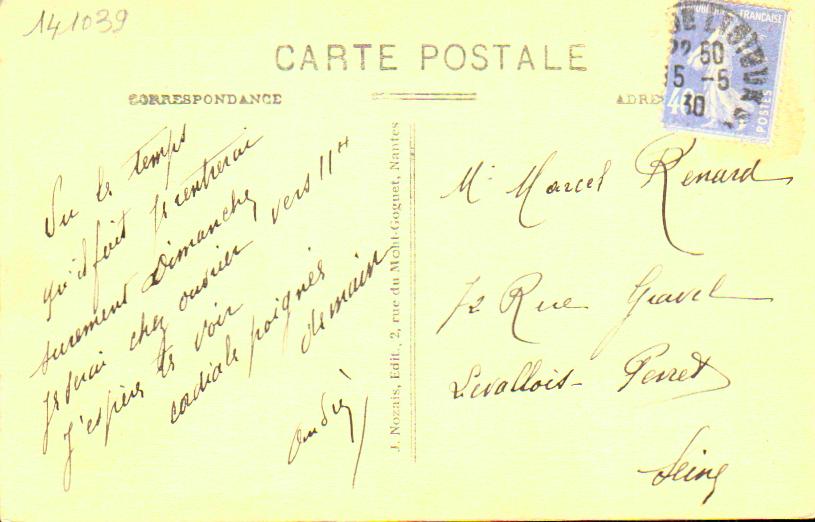 141039
CARTE POSTALE
CORRESPONDANCE
ADRE
RÉPUBLIQUE FRANÇAISE
POSTES
40
22 50
15 -5
30
Vu le temps
qu'il fait je rentrerai
surement Dimanche
je serai chez vers 11H
J'espère te voir
cordiale poignés
de main
André
J. Nozais, Edit., 2, rue du Mont-Goguet, Nantes
Mr Marcel Renard
72 Rue Gravel
Levallois-Perret
Seine